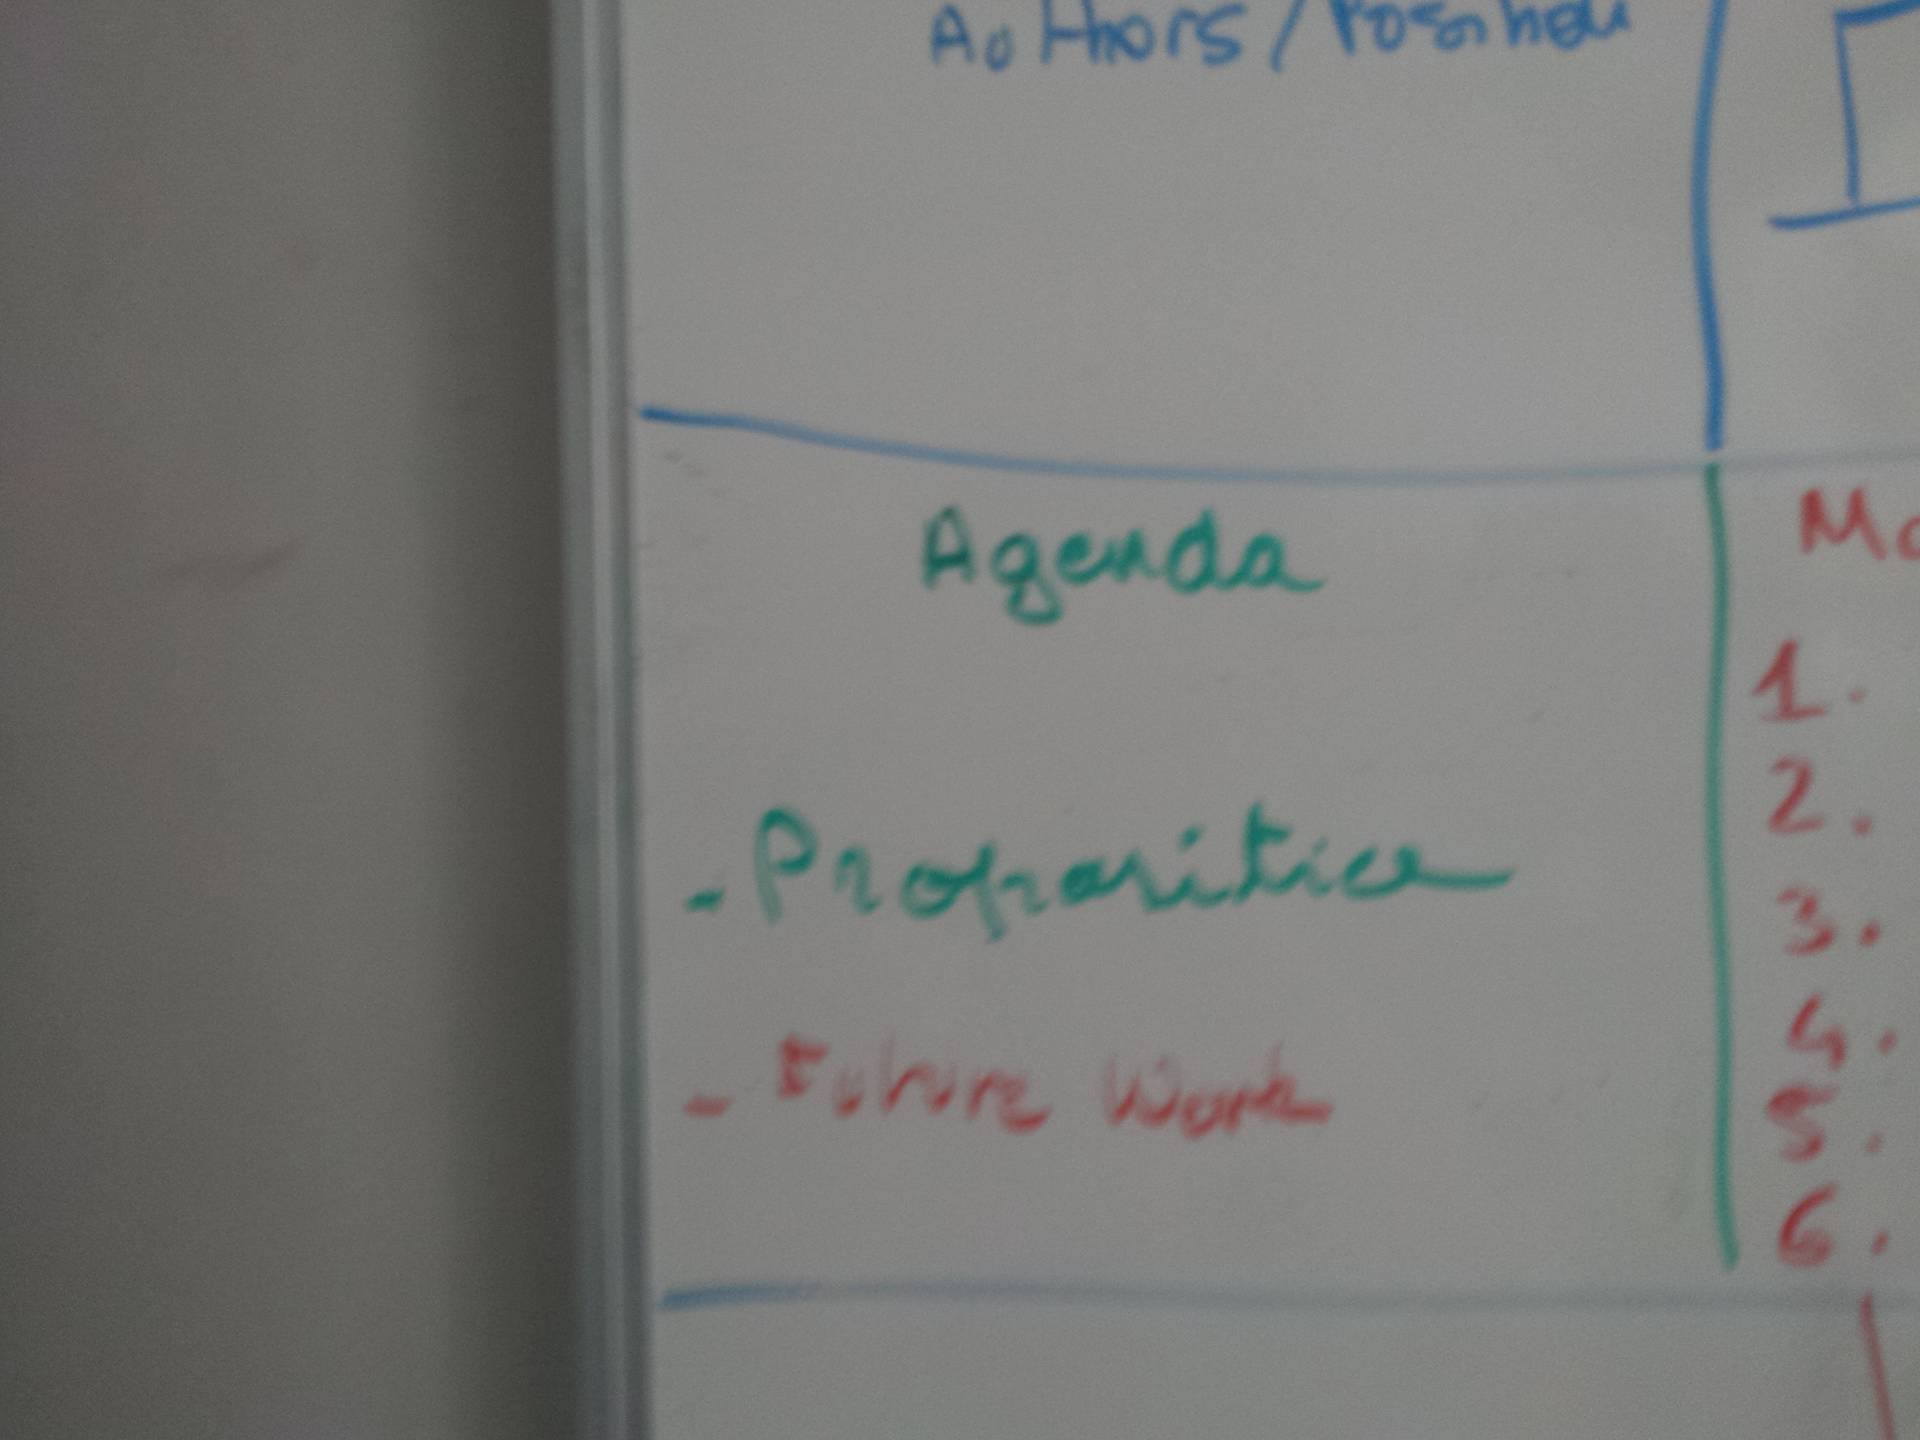 Authors/Position
Agenda
- Proposition
- Future Work
1.
2.
3.
4.
5.
6.